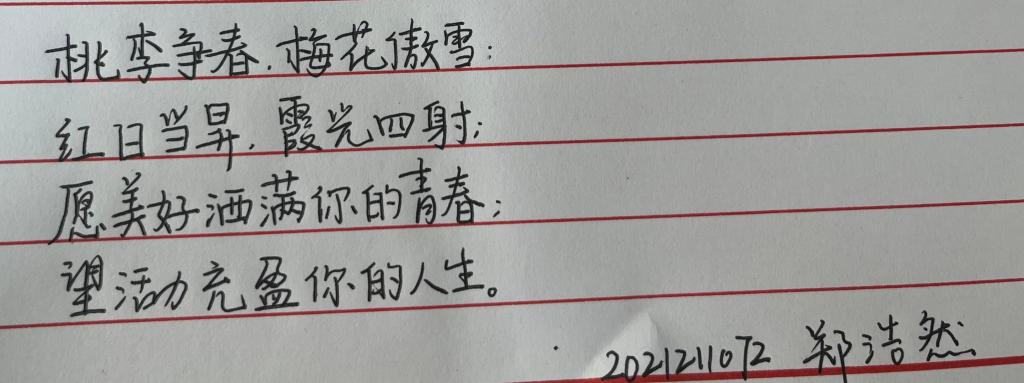 桃李争春.梅花傲雪;
红日当昇.霞光四射;
愿美好洒满你的青春;
望活力充盈你的人生。
2021211072 郑浩然